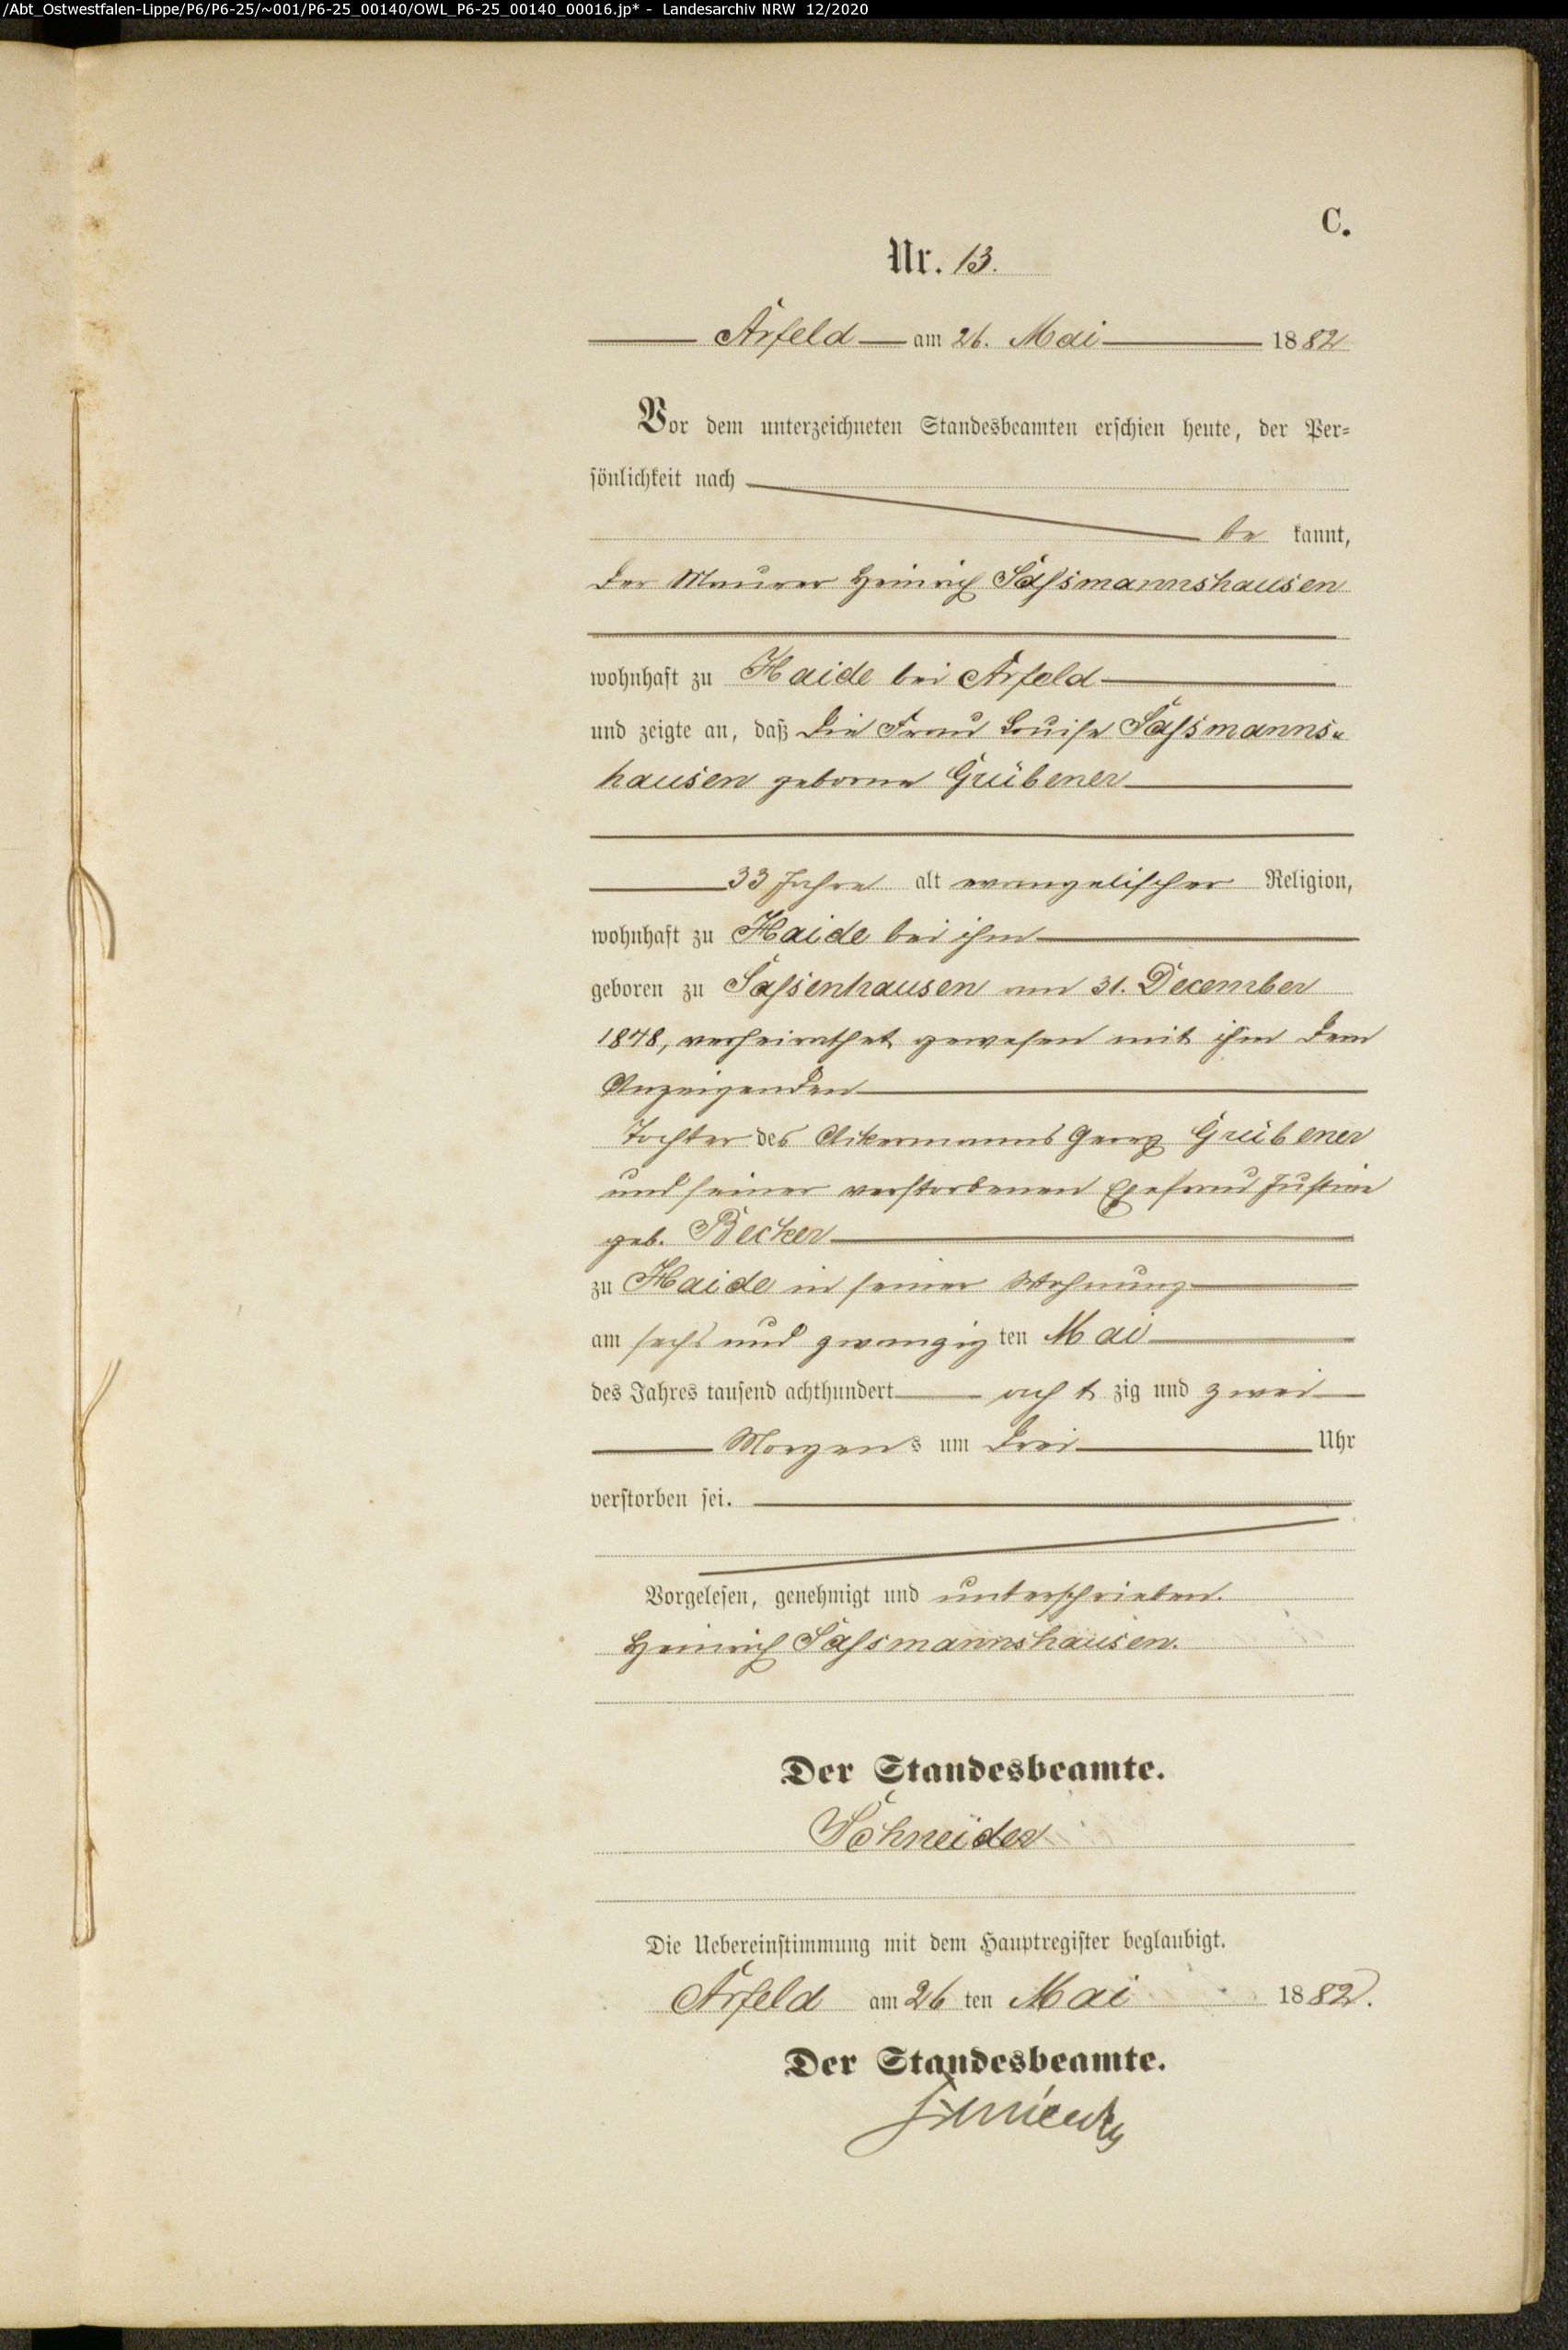 /Abt_Ostwestfalen-Lippe/P6/P6-25/~001/P6-25_00140/OWL_P6-25_00140_00016.jp* - Landesarchiv NRW 12/2020
C.
Nr. 13.
Arfeld am 26. Mai 1882
Vor dem unterzeichneten Standesbeamten erschien heute, der Per=
sönlichkeit nach
be kannt,
der Maurer Heinrich Saßmannshausen
wohnhaft zu Haide bei Arfeld
und zeigte an, daß die Frau Louise Saßmanns-
hausen geborne Grübener
33 Jahre alt evangelischer Religion,
wohnhaft zu Haide bei ihm
geboren zu Saßenhausen am 31. December
1848, verheirathet gewesen mit ihm dem
Anzeigenden
Tochter des Ackermanns Georg Grübener
und seiner verstorbenen Ehefrau Justine
geb. Becker
zu Haide in seiner Wohnung
am sechs und zwanzig ten Mai
des Jahres tausend achthundert acht zig und zwei
Morgens um drei Uhr
verstorben sei.
Vorgelesen, genehmigt und unterschrieben.
Heinrich Saßmannshausen.
Der Standesbeamte.
Schneider
Die Uebereinstimmung mit dem Hauptregister beglaubigt.
Arfeld am 26 ten Mai 1882.
Der Standesbeamte.